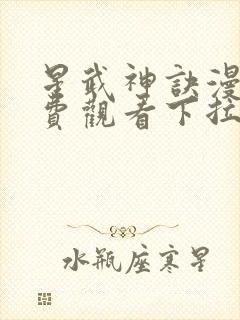 星武神訣漫
費觀看下拉
水瓶座寒星